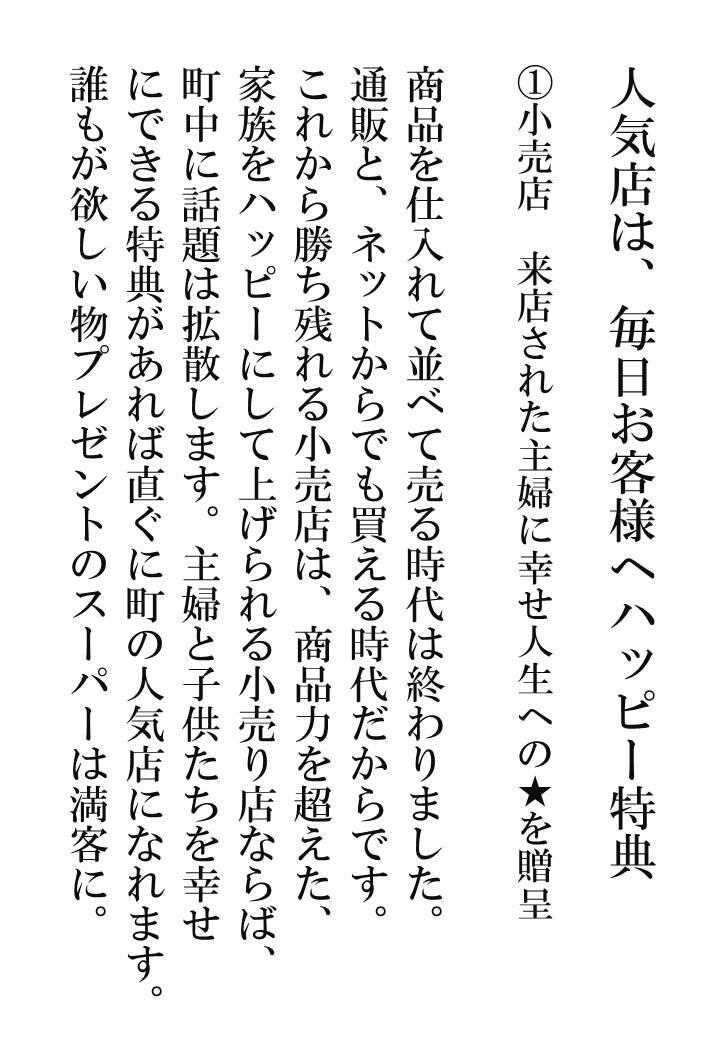 人気店は、毎日お客様へハッピー特典
①小売店　来店された主婦に幸せ人生への★を贈呈
商品を仕入れて並べて売る時代は終わりました。
通販と、ネットからでも買える時代だからです。
これから勝ち残れる小売店は、商品力を超えた、
家族をハッピーにして上げられる小売り店ならば、
町中に話題は拡散します。主婦と子供たちを幸せ
にできる特典があれば直ぐに町の人気店になれます。
誰もが欲しい物プレゼントのスーパーは満客に。